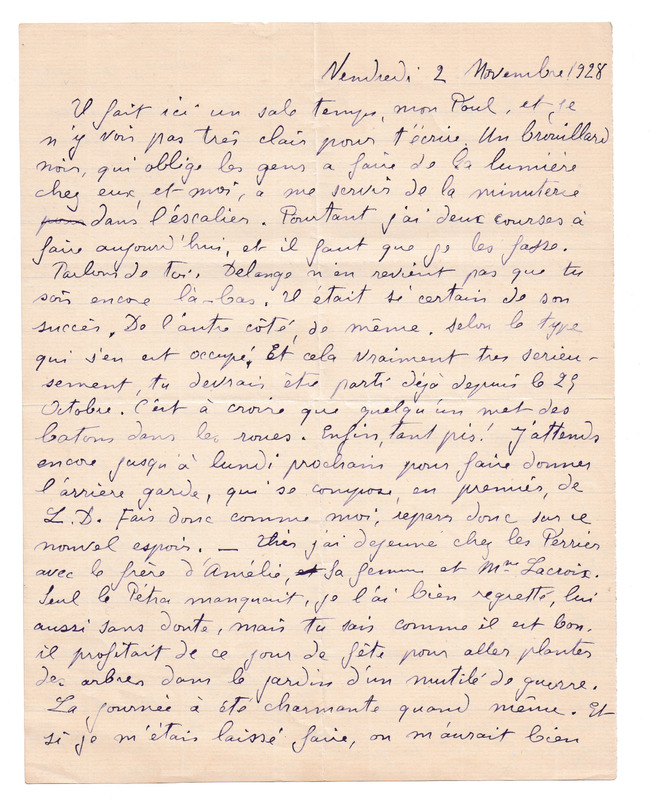 Vendredi 2 Novembre 1928
Il fait ici un sale temps, mon Paul, et je
n'y vois pas très clair pour t'écrire. Un brouillard
noir, qui oblige les gens a faire de la lumière
chez eux et moi, a me servir de la minuterie
dans l'éscalier. Pourtant j'ai deux courses à
faire aujourd'hui, et il faut que je les fasse.
Parlons de toi. Delange n'en revient pas que tu
sois encore là-bas. Il était si certain de son
succès. De l'autre côté, de même. selon le type
qui s'en est occupé. Et cela vraiment tres serieu-
sement, tu devrais être parti déjà depuis le 25
Octobre. C'est à croire que quelqu'un met des
batons dans les roues. Enfin, tant pis! J'attends
encore jusqu'à lundi prochain pour faire donner
l'arrière garde, qui se compose, en premier, de
L.D. Fais donc comme moi, repars donc sur ce
nouvel espoir. — Hier j'ai dejeuné chez les Perrier
avec le frère d'Amélie, sa femme et Mme Lacroix.
Seul le Petra manquait, je l'ai bien regretté, lui
aussi sans doute, mais tu sais comme il est bon.
il profitait de ce jour de fête pour aller planter
des arbres dans le jardin d'un mutilé de guerre.
La journée à été charmante quand même. Et
si je m'étais laissé faire, on m'aurait bien